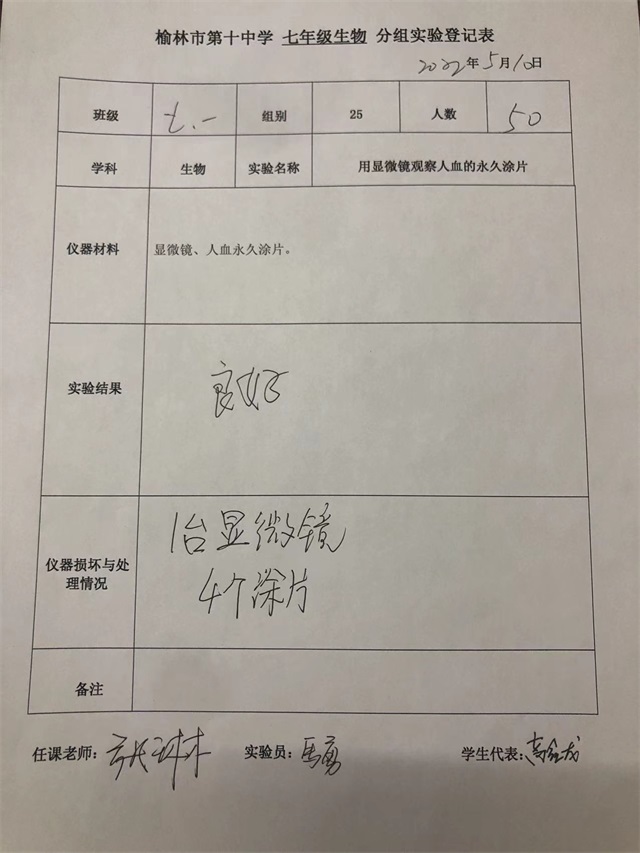 榆林市第十中学 七年级生物 分组实验登记表
2022年5月10日
班级 七.一 组别 25 人数 50
学科 生物 实验名称 用显微镜观察人血的永久涂片
仪器材料 显微镜、人血永久涂片。
实验结果 良好
仪器损坏与处理情况
1台显微镜
4个涂片
备注
任课老师： 实验员：马勇 学生代表：高